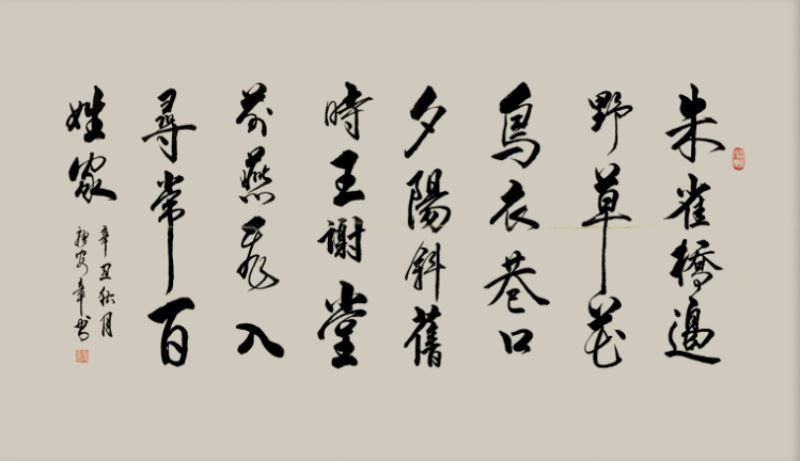 朱雀橋邊
野草花
烏衣巷口
夕陽斜舊
時王謝堂
前燕飛入
尋常百
姓家
辛丑秋月
章書